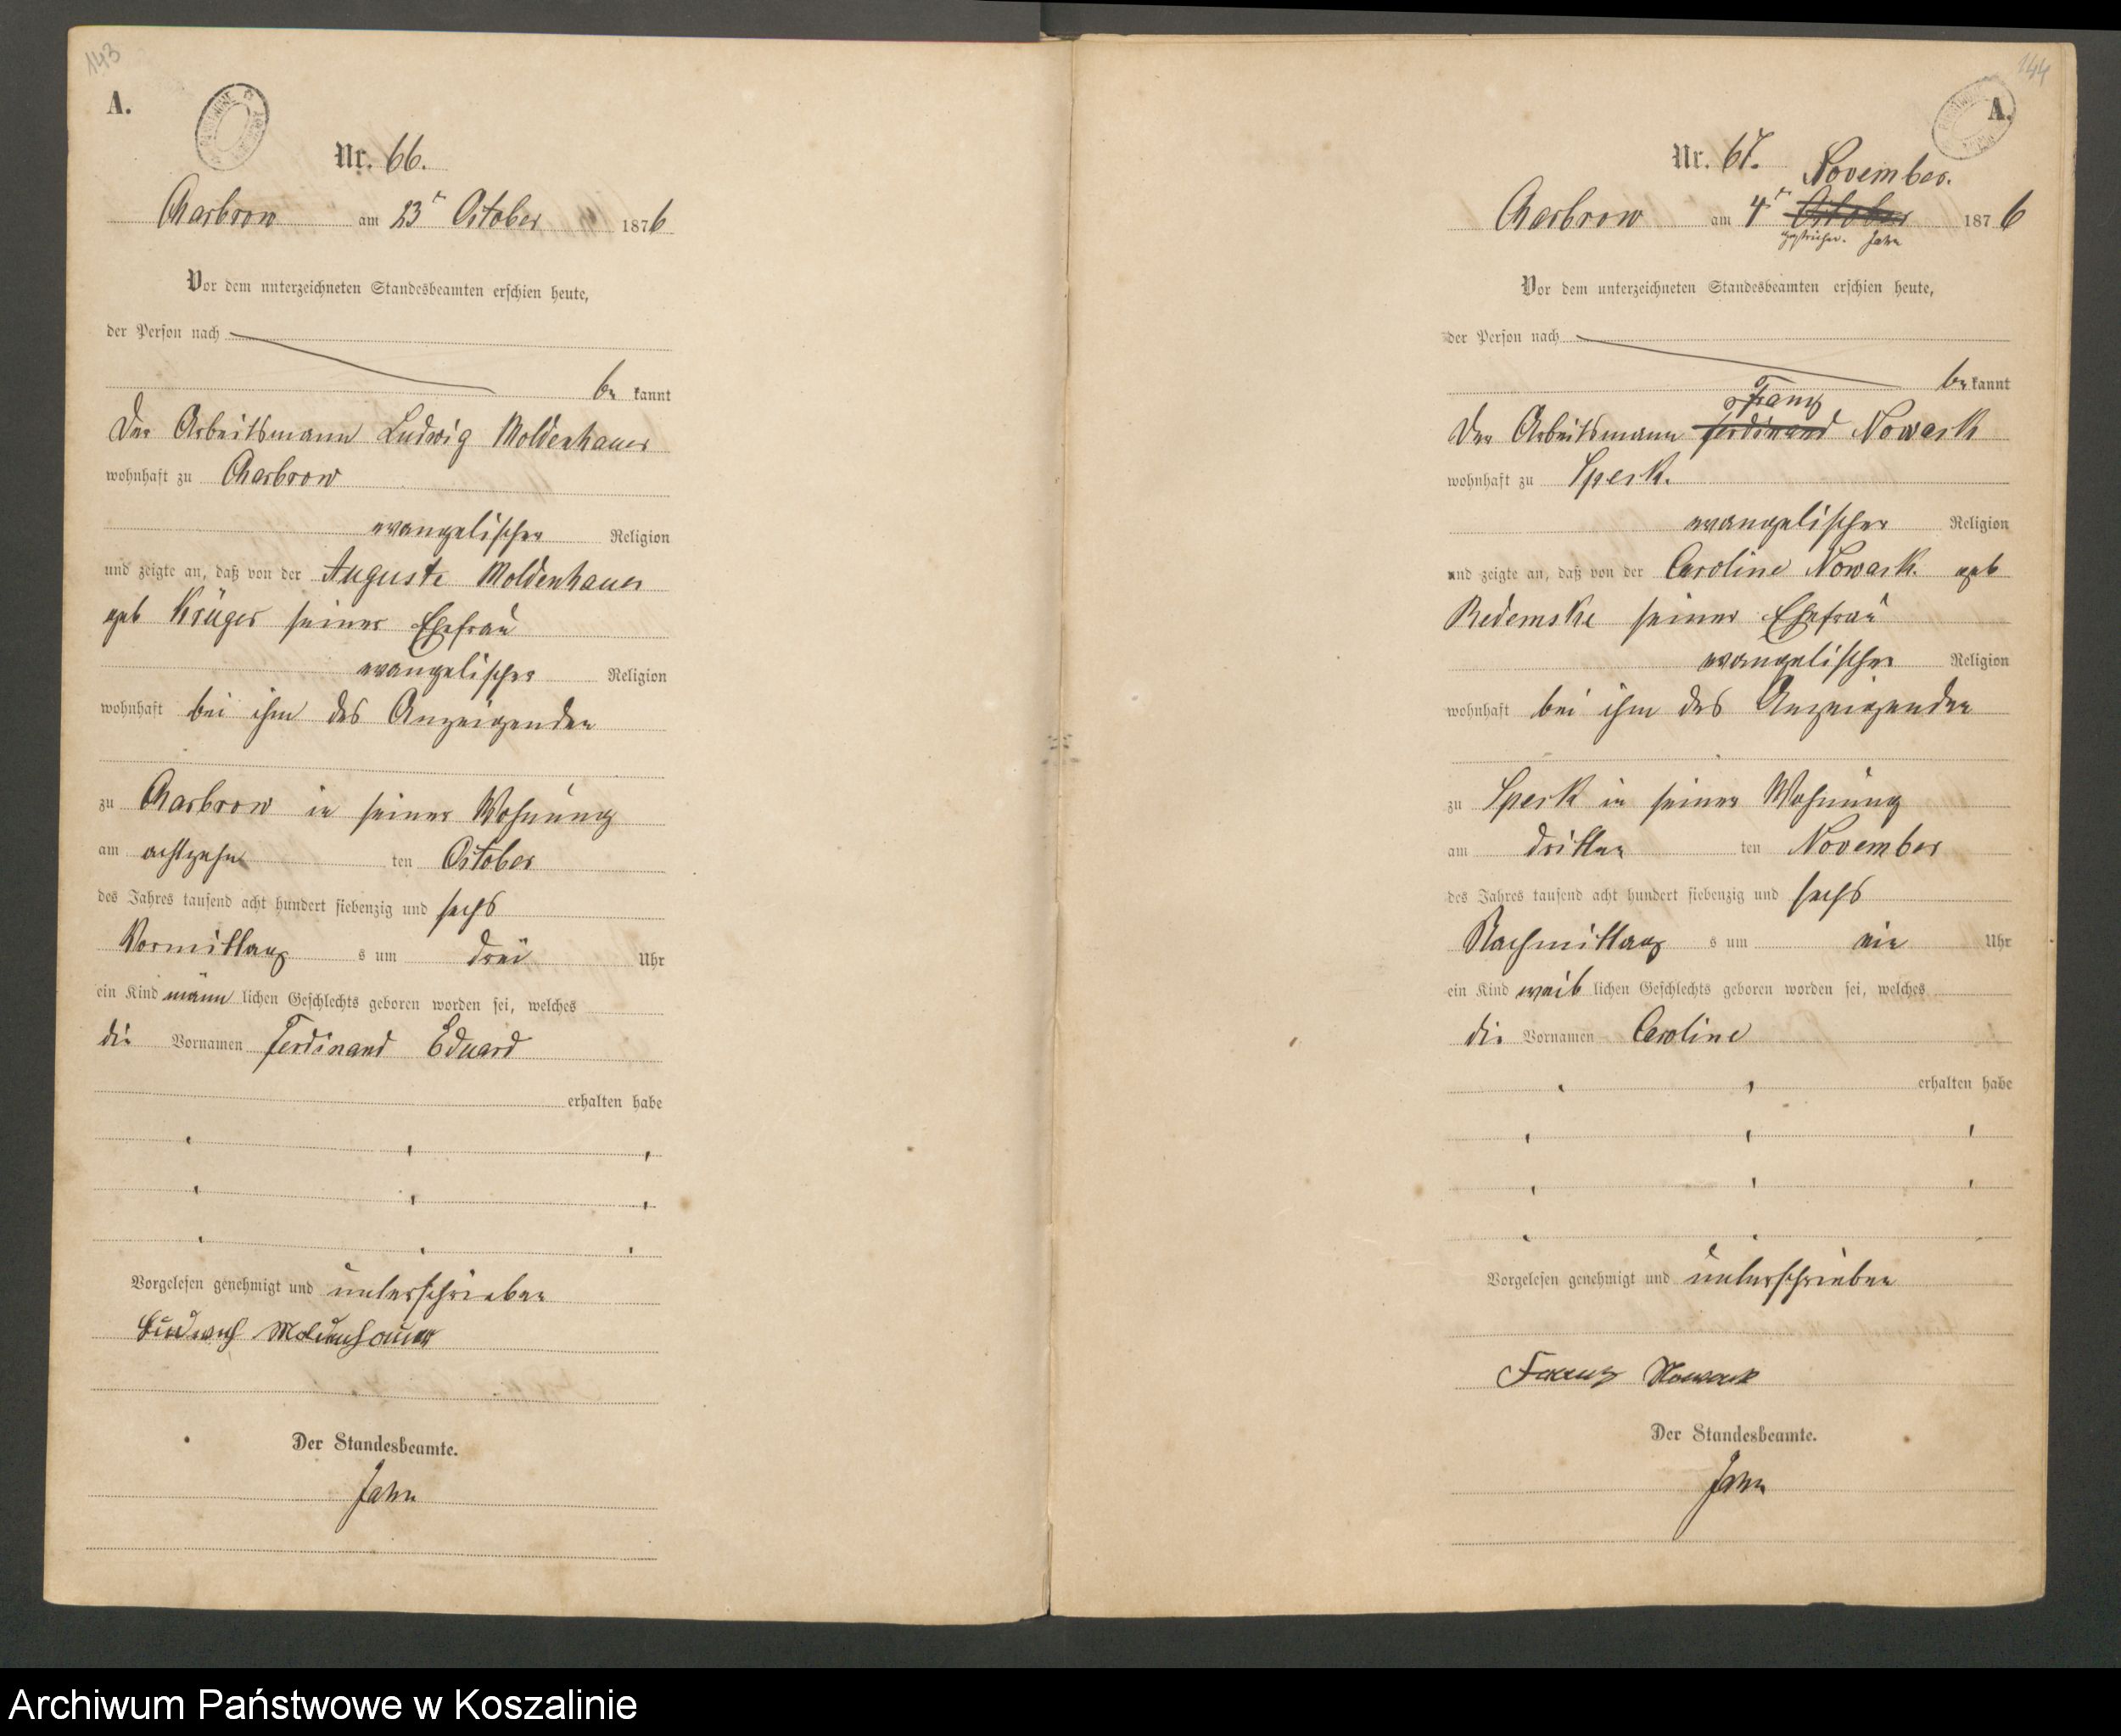 143
A.
Nr. 66.
Charbrow am 23ten October 1876
Vor dem unterzeichneten Standesbeamten erschien heute,
der Person nach
be kannt
Der Arbeitsmann Ludwig Moldenhauer
wohnhaft zu Charbrow
evangelischer Religion
und zeigte an, daß von der Auguste Moldenhauer
geb Krüger seiner Ehefrau
evangelischer Religion
wohnhaft bei ihm des Anzeigenden
zu Charbrow in seiner Wohnung
am achtzehn ten October
des Jahres tausend acht hundert siebenzig und sechs
Vormittag s um drei Uhr
ein Kind männ lichen Geschlechts geboren worden sei, welches
die Vornamen Ferdinand Eduard
erhalten habe
Vorgelesen genehmigt und unterschrieben
Ludwich Moldenhauer
Der Standesbeamte.
Jahn
144
A.
Nr. 67.
November.
Charbrow am 4ten October 1876
gestrichen. Jahn
Vor dem unterzeichneten Standesbeamten erschien heute,
der Person nach
be kannt
Franz
Der Arbeitsmann Ferdinand Nowack
wohnhaft zu Speck.
evangelischer Religion
und zeigte an, daß von der Caroline Nowack geb
Redemske seiner Ehefrau
evangelischer Religion
wohnhaft bei ihm des Anzeigenden
zu Speck in seiner Wohnung
am dritten ten November
des Jahres tausend acht hundert siebenzig und sechs
Nachmittag s um ein Uhr
ein Kind weib lichen Geschlechts geboren worden sei, welches
die Vornamen Caroline
erhalten habe
Vorgelesen genehmigt und unterschrieben
Franz Nowack
Der Standesbeamte.
Jahn
Archiwum Państwowe w Koszalinie